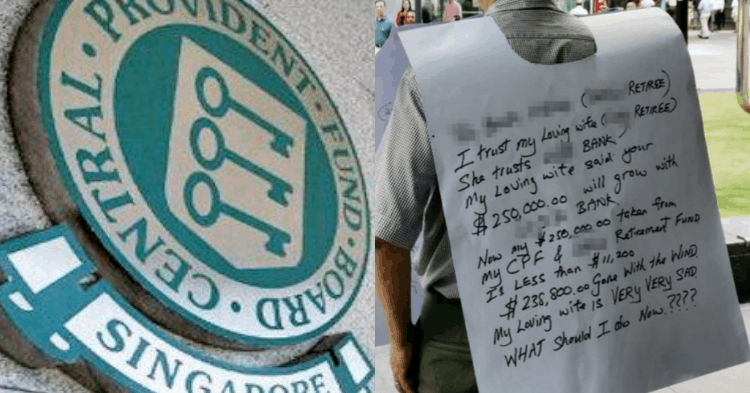 CENTRAL · PROVIDENT · FUND · BOARD ·
SINGAPORE
( RETIREE)
I trust my Loving wife ( RETIREE)
She trusts BANK)
My Loving wife said your
$250,000.00 will grow with
BANK
Now my $250,000.00 taken from
My CPF & Retirement Fund
Is Less than $11,200
$235,800.00 Gone With the WIND
My Loving wife is VERY VERY SAD
WHAT Should I do Now.????